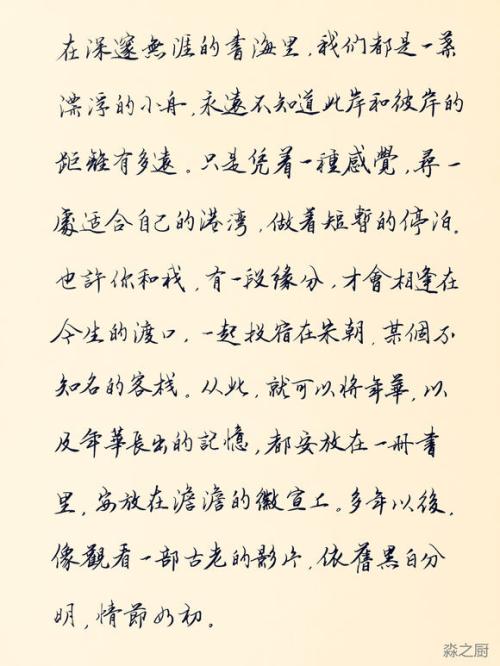 在深邃無涯的書海里，我们都是一葉
漂浮的小舟，永遠不知道此岸和彼岸的
距離有多遠。只是凭着一種感覺，尋一
處适合自己的港湾，做着短暫的停泊。
也許你和我，有一段缘分，才會相逢在
今生的渡口，一起投宿在宋朝，某個不
知名的客栈。从此，就可以将年華，以
及年華長出的記憶，都安放在一册書
里，安放在澹澹的徽宣上。多年以後，
像觀看一部古老的影片，依舊黑白分
明，情節如初。
淼之厨